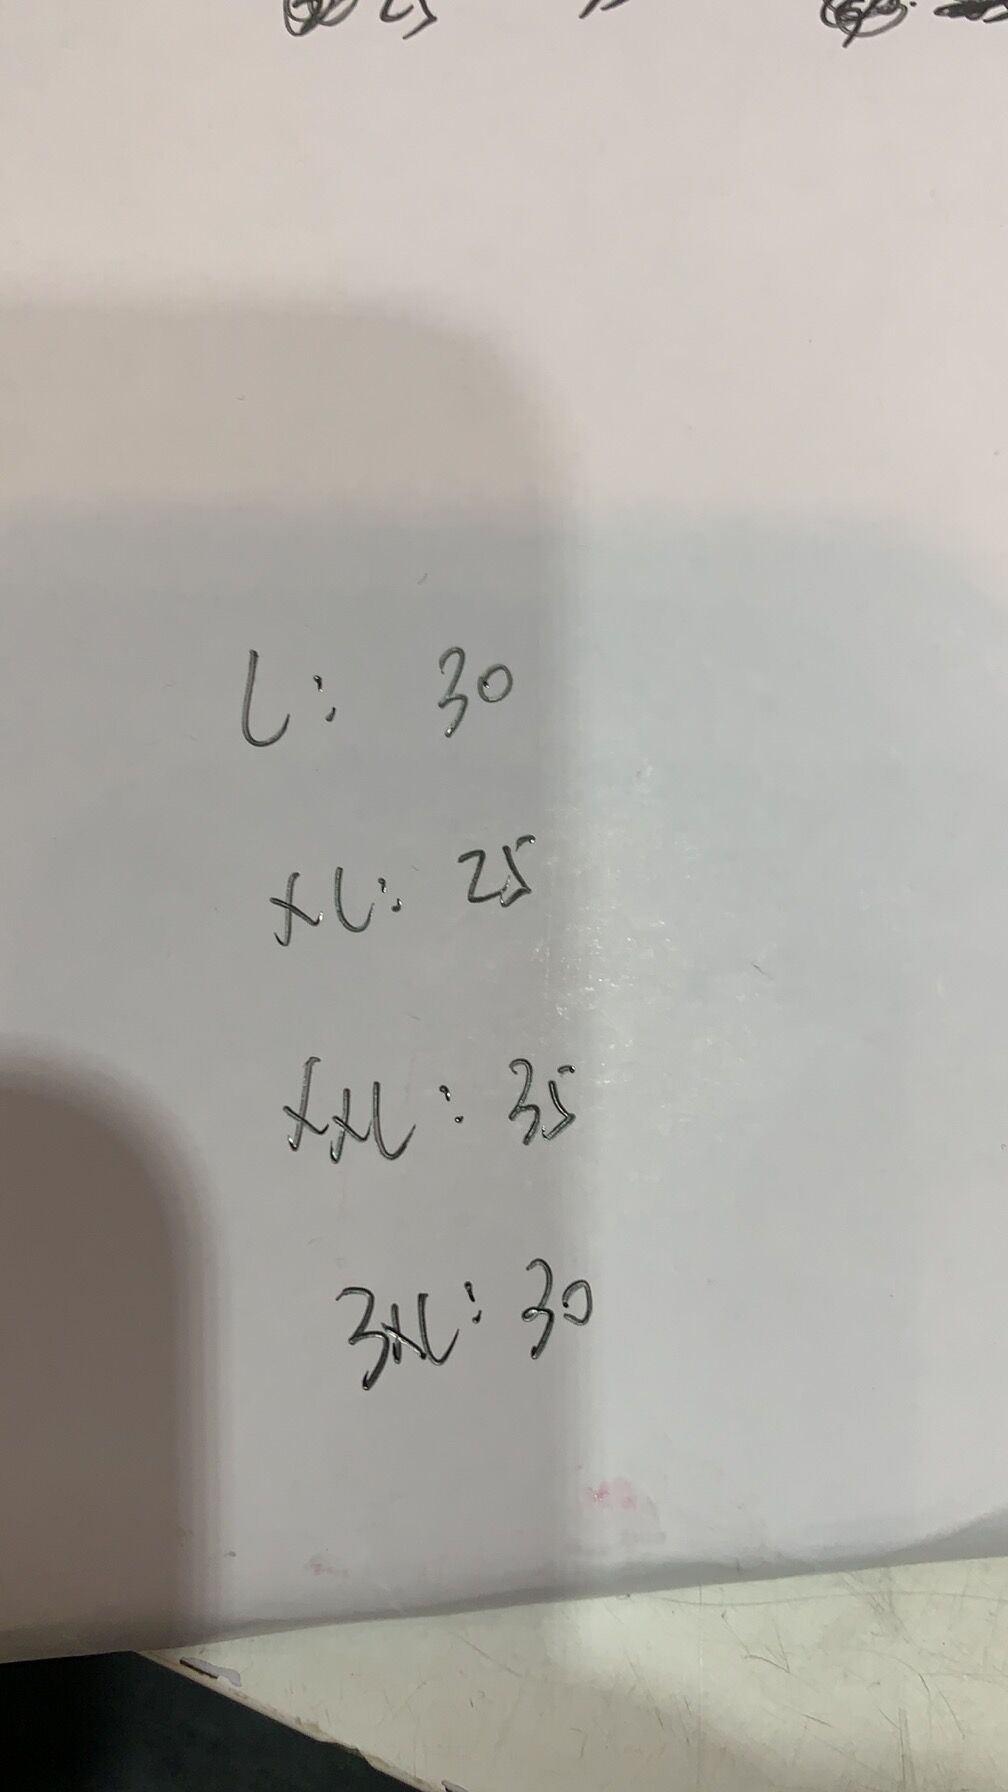 L: 30
XL: 25
XXL: 35
3XL: 30